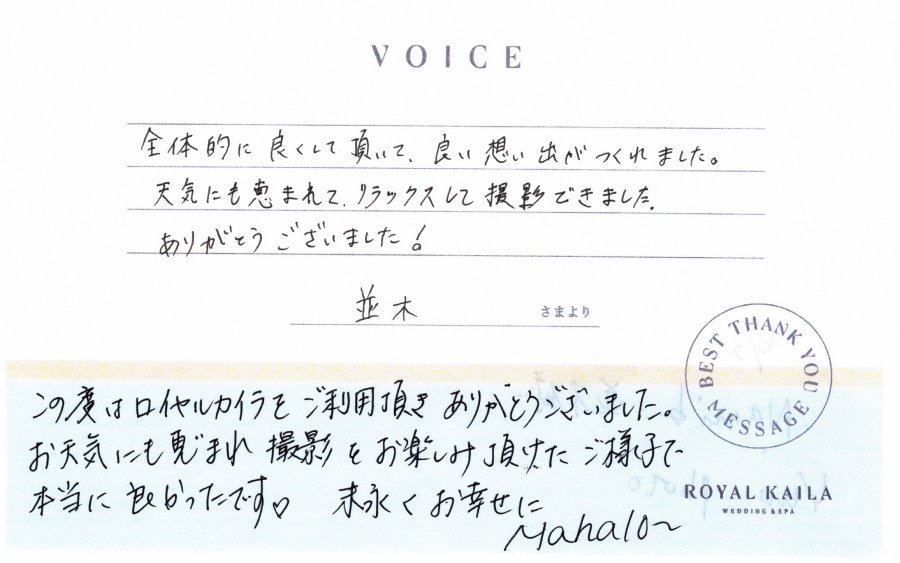 VOICE
全体的に良くして頂いて、良い想い出がつくれました。
天気にも恵まれて、リラックスして撮影できました。
ありがとうございました!
並木 さまより
BEST THANK YOU MESSAGE
この度はロイヤルカイラをご利用頂きありがとうございました。
お天気にも恵まれ撮影をお楽しみ頂けたご様子で
本当に良かったです♡ 末永くお幸せに
Mahalo~
ROYAL KAILA
WEDDING & SPA